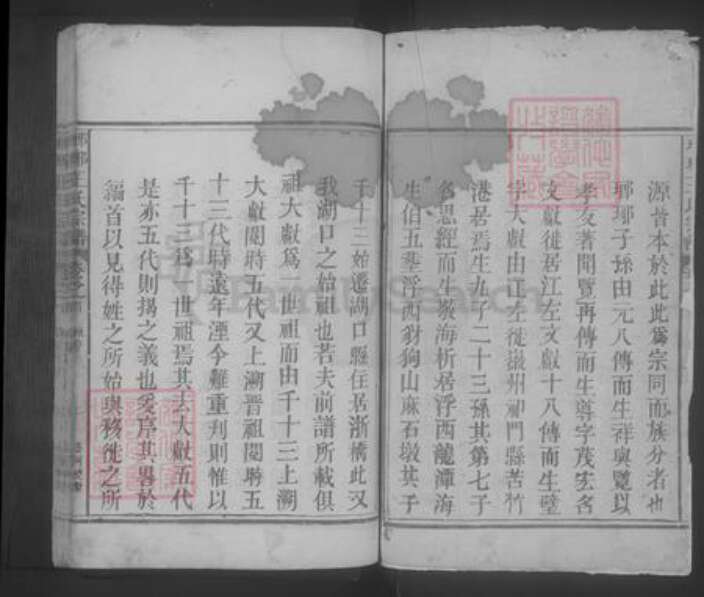 源昔本於此此爲宗同而族分者也
瑯琊子孫由元八傳而生祥與覽以
孝友著聞覽再傳而生導字茂宏名
文獻徙居江左文獻十八傳而生璧
字大獻由江左徙徽州祁門縣苦竹
港居焉生九子二十三孫其第七子
名思經而生嶽海析居浮西龍潭海
生伯五遷浮西豺狗山麻石墩其子
千十三始遷湖口縣住居浙橋此又
我湖口之始祖也若夫前譜所載俱
祖大獻爲一世祖而由千十三上溯
大獻閱時五代又上溯晋祖閱時五
十三代時遠年湮今難重刋則惟以
千十三爲一世祖焉其去大獻五代
是亦五代則揚之義也爰序其畧於
編首以見得姓之所始與移徙之所
瑯琊王氏宗譜 卷之首
FamilySearch